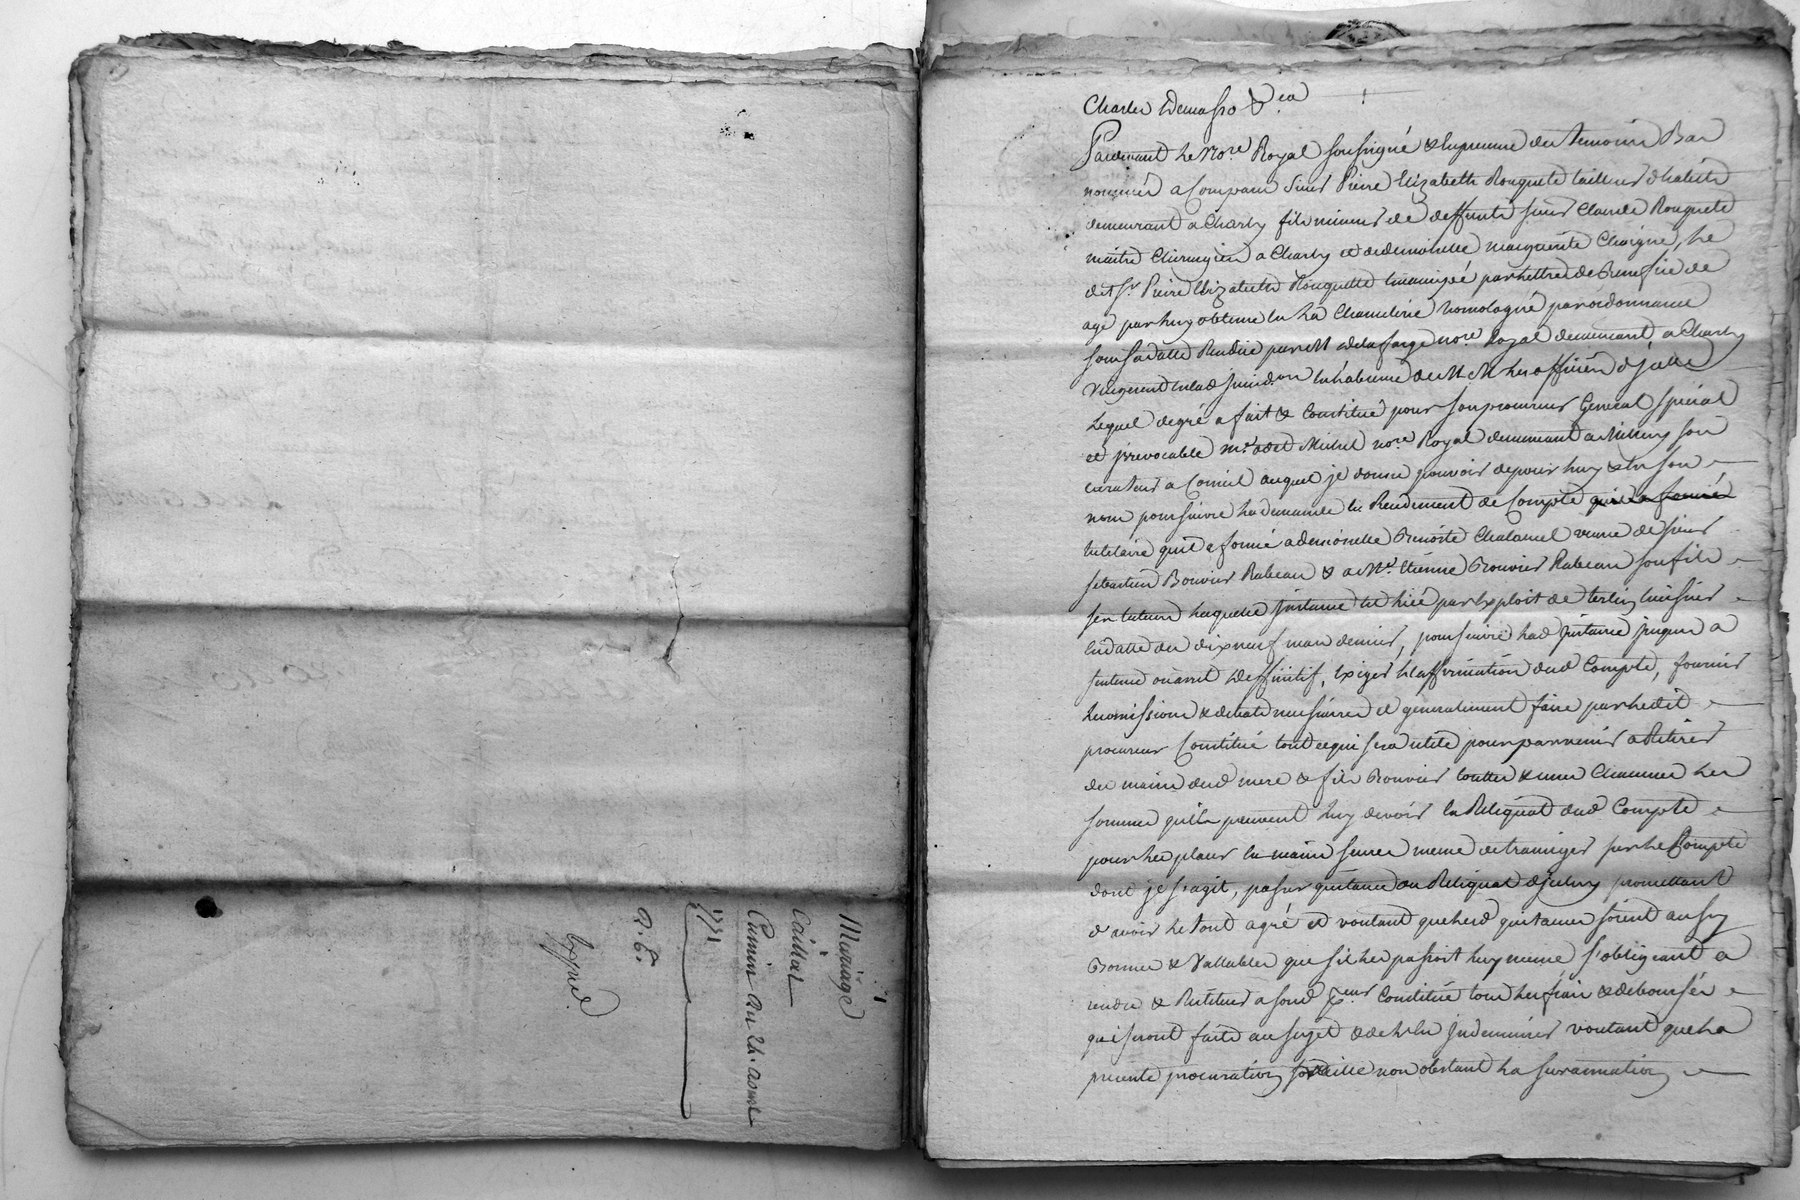 Mariage
à
Caillat
Cumin du 24. aoust
1771
Charles
Pardevant le No.re Royal soussigné & en presence des temoins Bas
nommés a Comparu sieur Pierre Elizabeth Rouquete tailleur d'habits
demeurant a Charly fils mineur de deffunts sieur Claude Rouquete
maitre Chirurgien a Charly et de demoiselle marguerite Chaigne, Le
dit Sr. Pierre Elizabeth Rouquette emancipé par lettres de Benefice de
age par luy obtenue en la Chancelerie homologué par ordonnance
sous sa datte Rendue par M delafarge no.re Royal demeurant a Charly
Lequel degré a fait & Constitué pour son procureur General special
et jrrevocable M.r Michel no.re Royal demeurant a Millery son
curateur a Conseil auquel je donne pouvoir de pour luy & en son
nom poursuivre la demande en Rendement de Compte qu'il a formé
tutelaire qu'il a formé a demoiselle Benoite Chalamel veuve de sieur
sebastien Bouvier Rabeau & a M.r Etienne Bouvier Rabeau son fils
ses tuteurs laquelle jnstance est liée par Exploit de huissier
En datte du dixneuf mars dernier, poursuivre lad jnstance jusques a
sentence ou arret Deffinitif, Exiger l'affirmation dud Compte, fournir
les omissions & debats necessaires et generalement faire par ledit
procureur Constitué tout ce qui sera utile pour parvenir a Retirer
des mains desd mere & fils Bouvier toutes & unes Chacunes les
sommes qu'ils peuvent luy devoir en Reliquat dud Compte
pour les placer en mains sures meme de transiger sur le Compte
dont je s'agit, passer quitance du Reliquat d'jceluy promettant
d'avoir le tout agré et voulant que lesd quitances soient aussy
Bonnes & Vallables que s'il les passoit luy meme s'obligeant a
rendre & Restituer a sond p.eur Constitué tous les frais & deboursés
qui seront faits au sujet & de l'en jndemniser voulant que la
presente procuration vaille non obstant la surannation